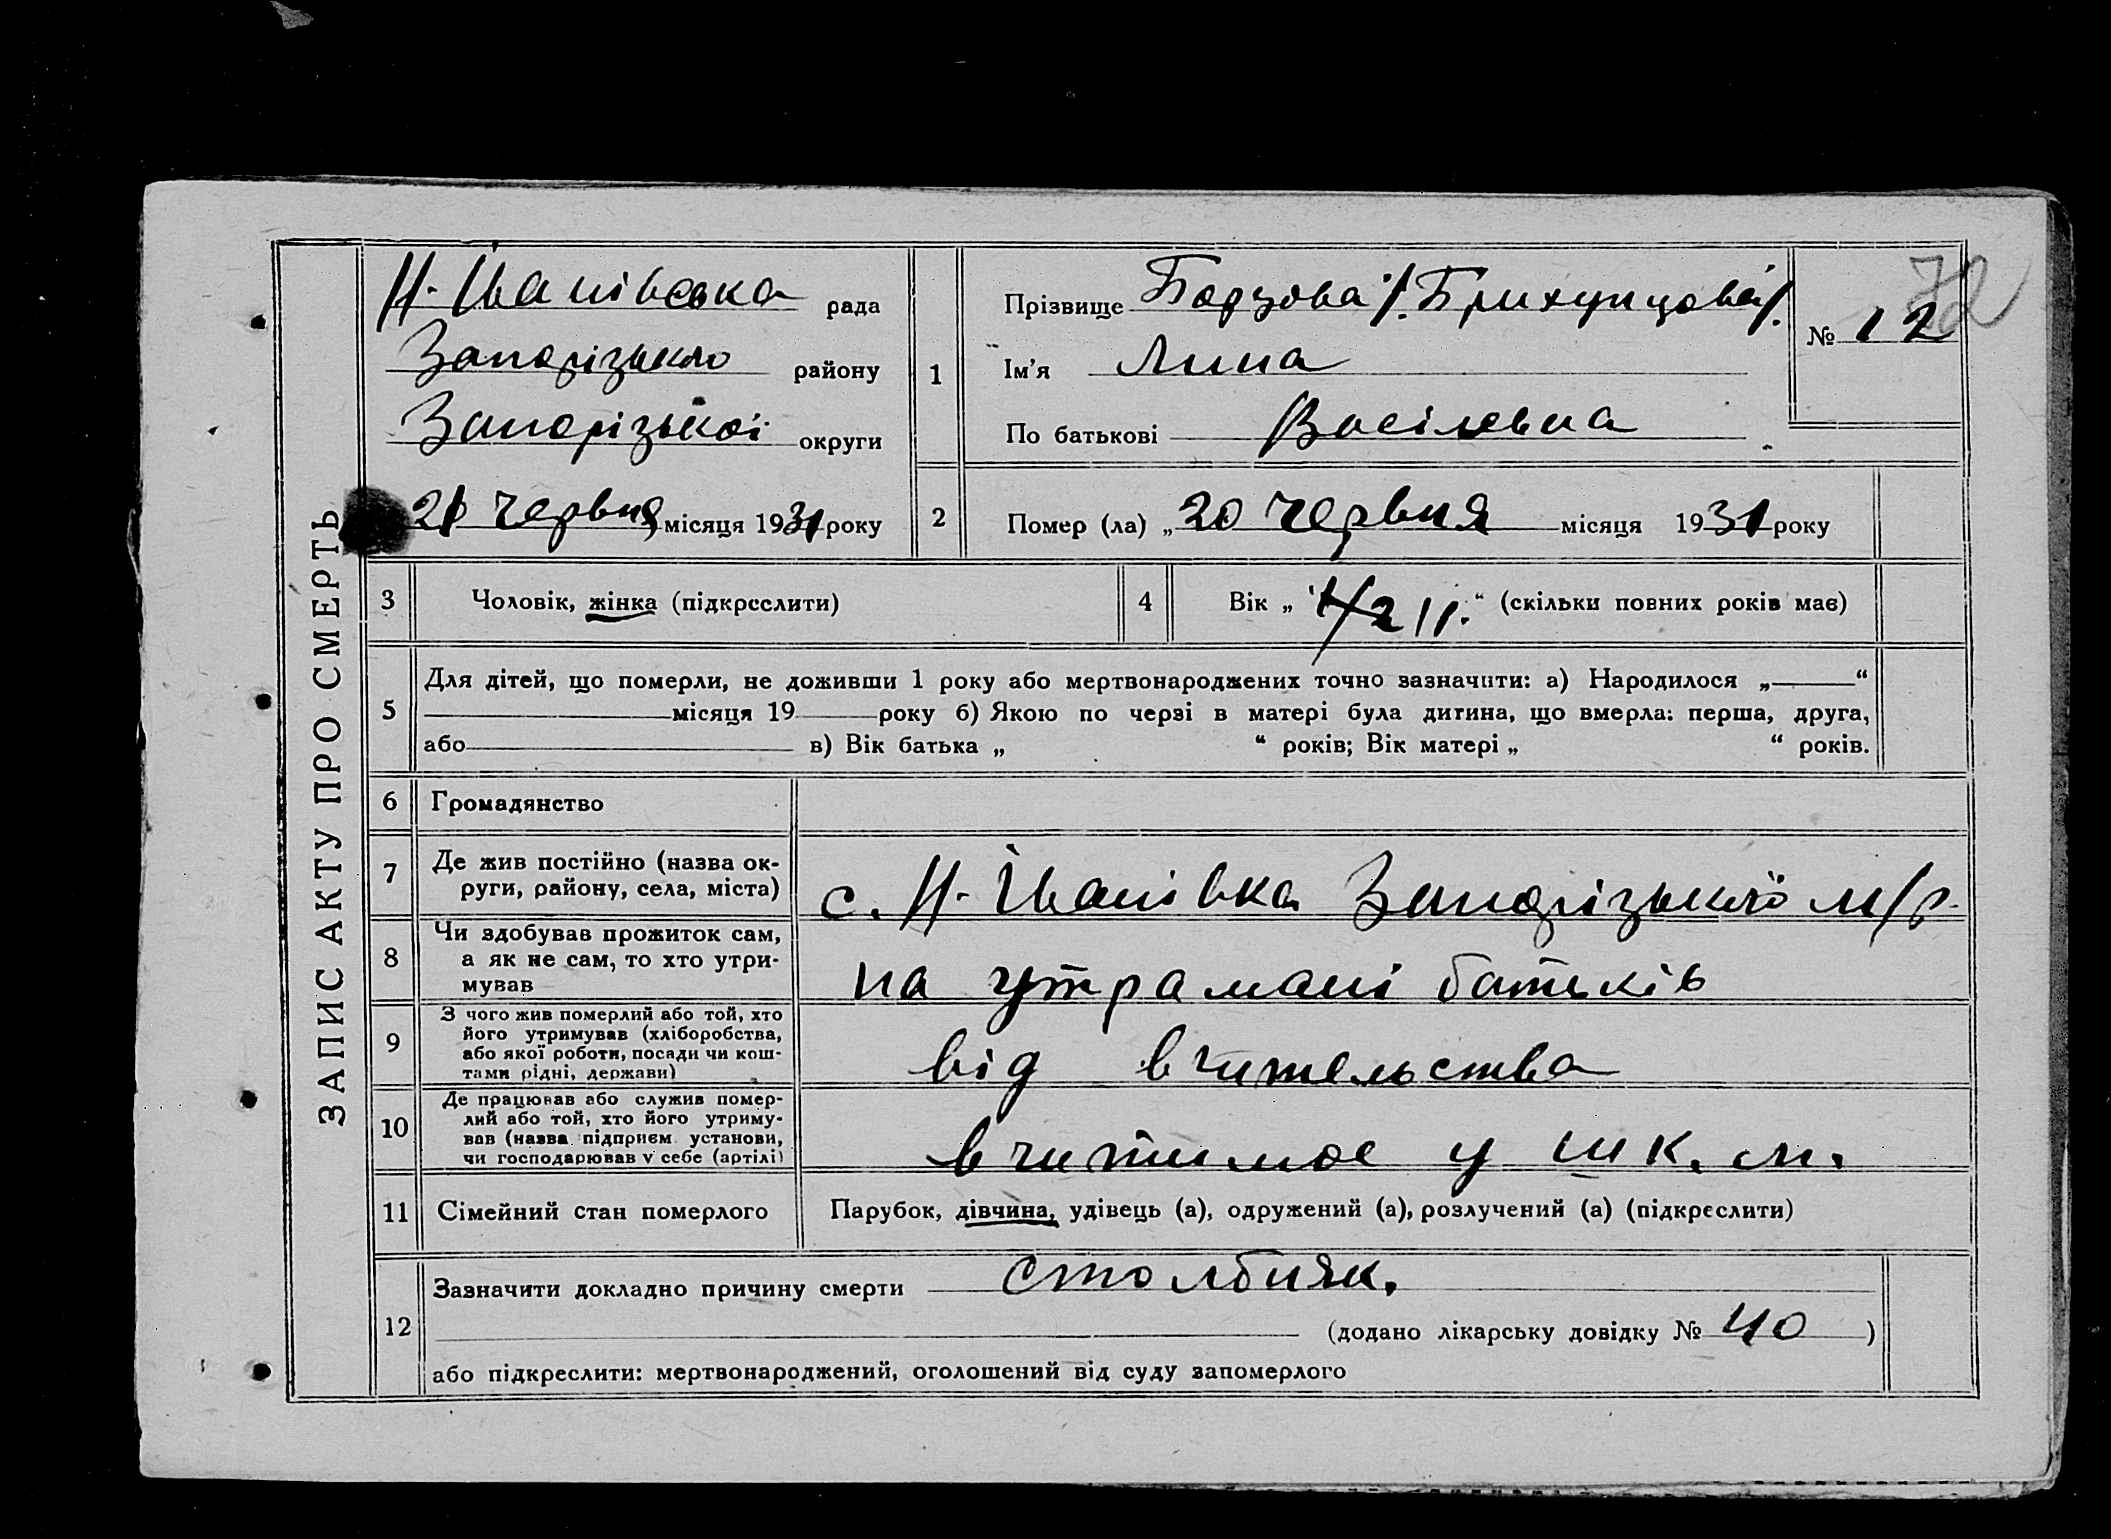 ЗАПИС АКТУ ПРО СМЕРТЬ
Н. Іванівська рада
Запорізького району
Запорізької округи
21 червня місяця 1931 року
72
№ 12
1
Прізвище Борзова /.Брихунцова/.
Ім’я Лина
По батькові Васілевна
2
Помер (ла) „20 червня місяця 1931 року
3 Чоловік, жінка (підкреслити)
4 Вік „ 1/2 р.“ (скільки повних років має)
5
Для дітей, що померли, не доживши 1 року або мертвонароджених точно зазначити: а) Народилося „ “
місяця 19 року б) Якою по черзі в матері була дитина, що вмерла: перша, друга,
або в) Вік батька „ “ років; Вік матері „ “ років.
6 Громадянство
7 Де жив постійно (назва ок-
руги, району, села, міста)
с. Н. Іванівка Запорізького м/р.
8 Чи здобував прожиток сам,
а як не сам, то хто утри-
мував
на утрамані батьків
9 З чого жив померлий або той, хто
його утримував (хліборобства,
або якої роботи, посади чи кош-
тами рідні, держави)
від вчительства
10 Де працював або служив помер-
лий або той, хто його утриму-
вав (назва підприєм. установи,
чи господарював у себе (артілі)
у шк. м.
11 Сімейний стан померлого Парубок, дівчина, удівець (а), одружений (а), розлучений (а) (підкреслити)
12
Зазначити докладно причину смерти столбняк.
(додано лікарську довідку № 40 )
або підкреслити: мертвонароджений, оголошений від суду запомерлого